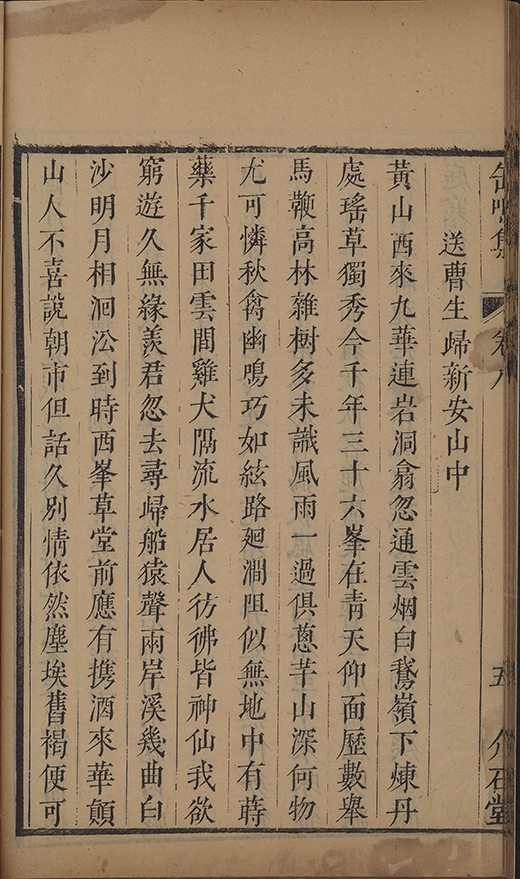 缶鳴集 卷八 五 介石堂
送曹生歸新安山中
黃山西來九華連岩洞翕忽通雲烟白鵞嶺下煉丹
處瑤草獨秀今千年三十六峯在青天仰面歷數舉
馬鞭高林雜樹多未識風雨一過俱蔥芊山深何物
尤可憐秋禽幽鳴巧如絃路廻澗阻似無地中有蒔
藥千家田雲間雞犬隔流水居人彷彿皆神仙我欲
窮遊久無緣羨君忽去尋歸船猿聲兩岸溪幾曲白
沙明月相洄沿到時西峯草堂前應有携酒來華顛
山人不喜說朝市但話久別情依然塵埃舊褐便可